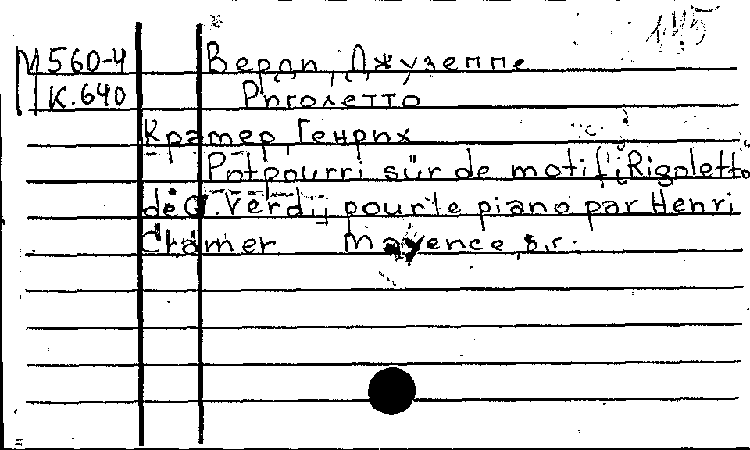 145
М560-4 Верди, Джузеппе
К.640 Риголетто
Крамер, Генрих
Potpourri sür de motif, Rigoletto
de G. Verdi, pour le piano par Henri
Cramer Mayence, s.r.